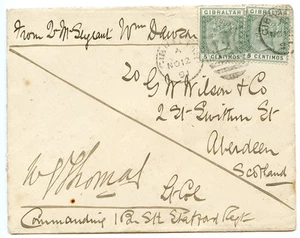 From Qr Mr Sergeant Wm Dawson
GIBRALTAR GIBRALTAR
5 CENTIMOS 5 CENTIMOS
A
NO 12
To G W Wilson & Co
2 St Swithin St
Aberdeen
Scotland
Lt Col
Commanding 1 Bn Sth Stafford Regt